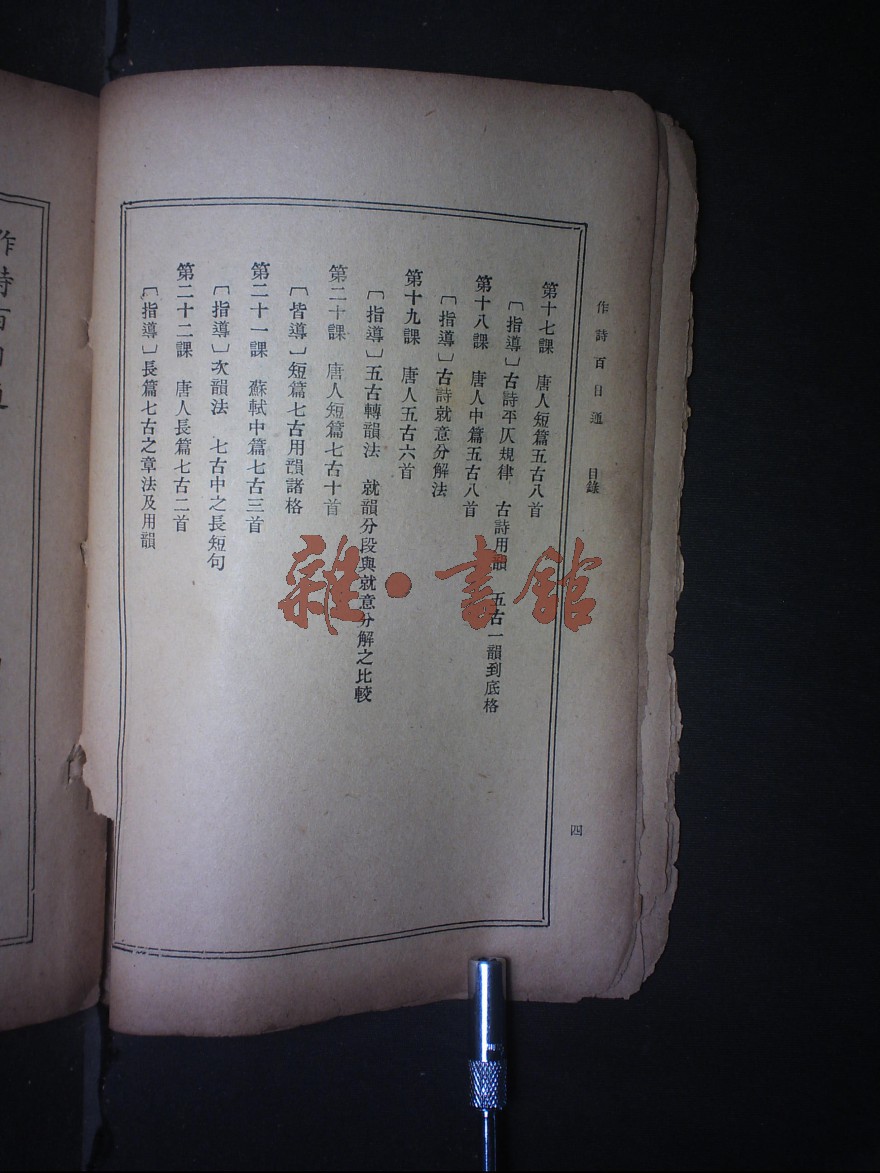 作詩百日通　目錄
四
第十七課　唐人短篇五古八首
〔指導〕古詩平仄規律　古詩用韻　五古一韻到底格
第十八課　唐人中篇五古八首
〔指導〕古詩就意分解法
第十九課　唐人五古六首
〔指導〕五古轉韻法　就韻分段與就意分解之比較
第二十課　唐人短篇七古十首
〔皆導〕短篇七古用韻諸格
第二十一課　蘇軾中篇七古三首
〔指導〕次韻法　七古中之長短句
第二十二課　唐人長篇七古二首
〔指導〕長篇七古之章法及用韻
雜·書館